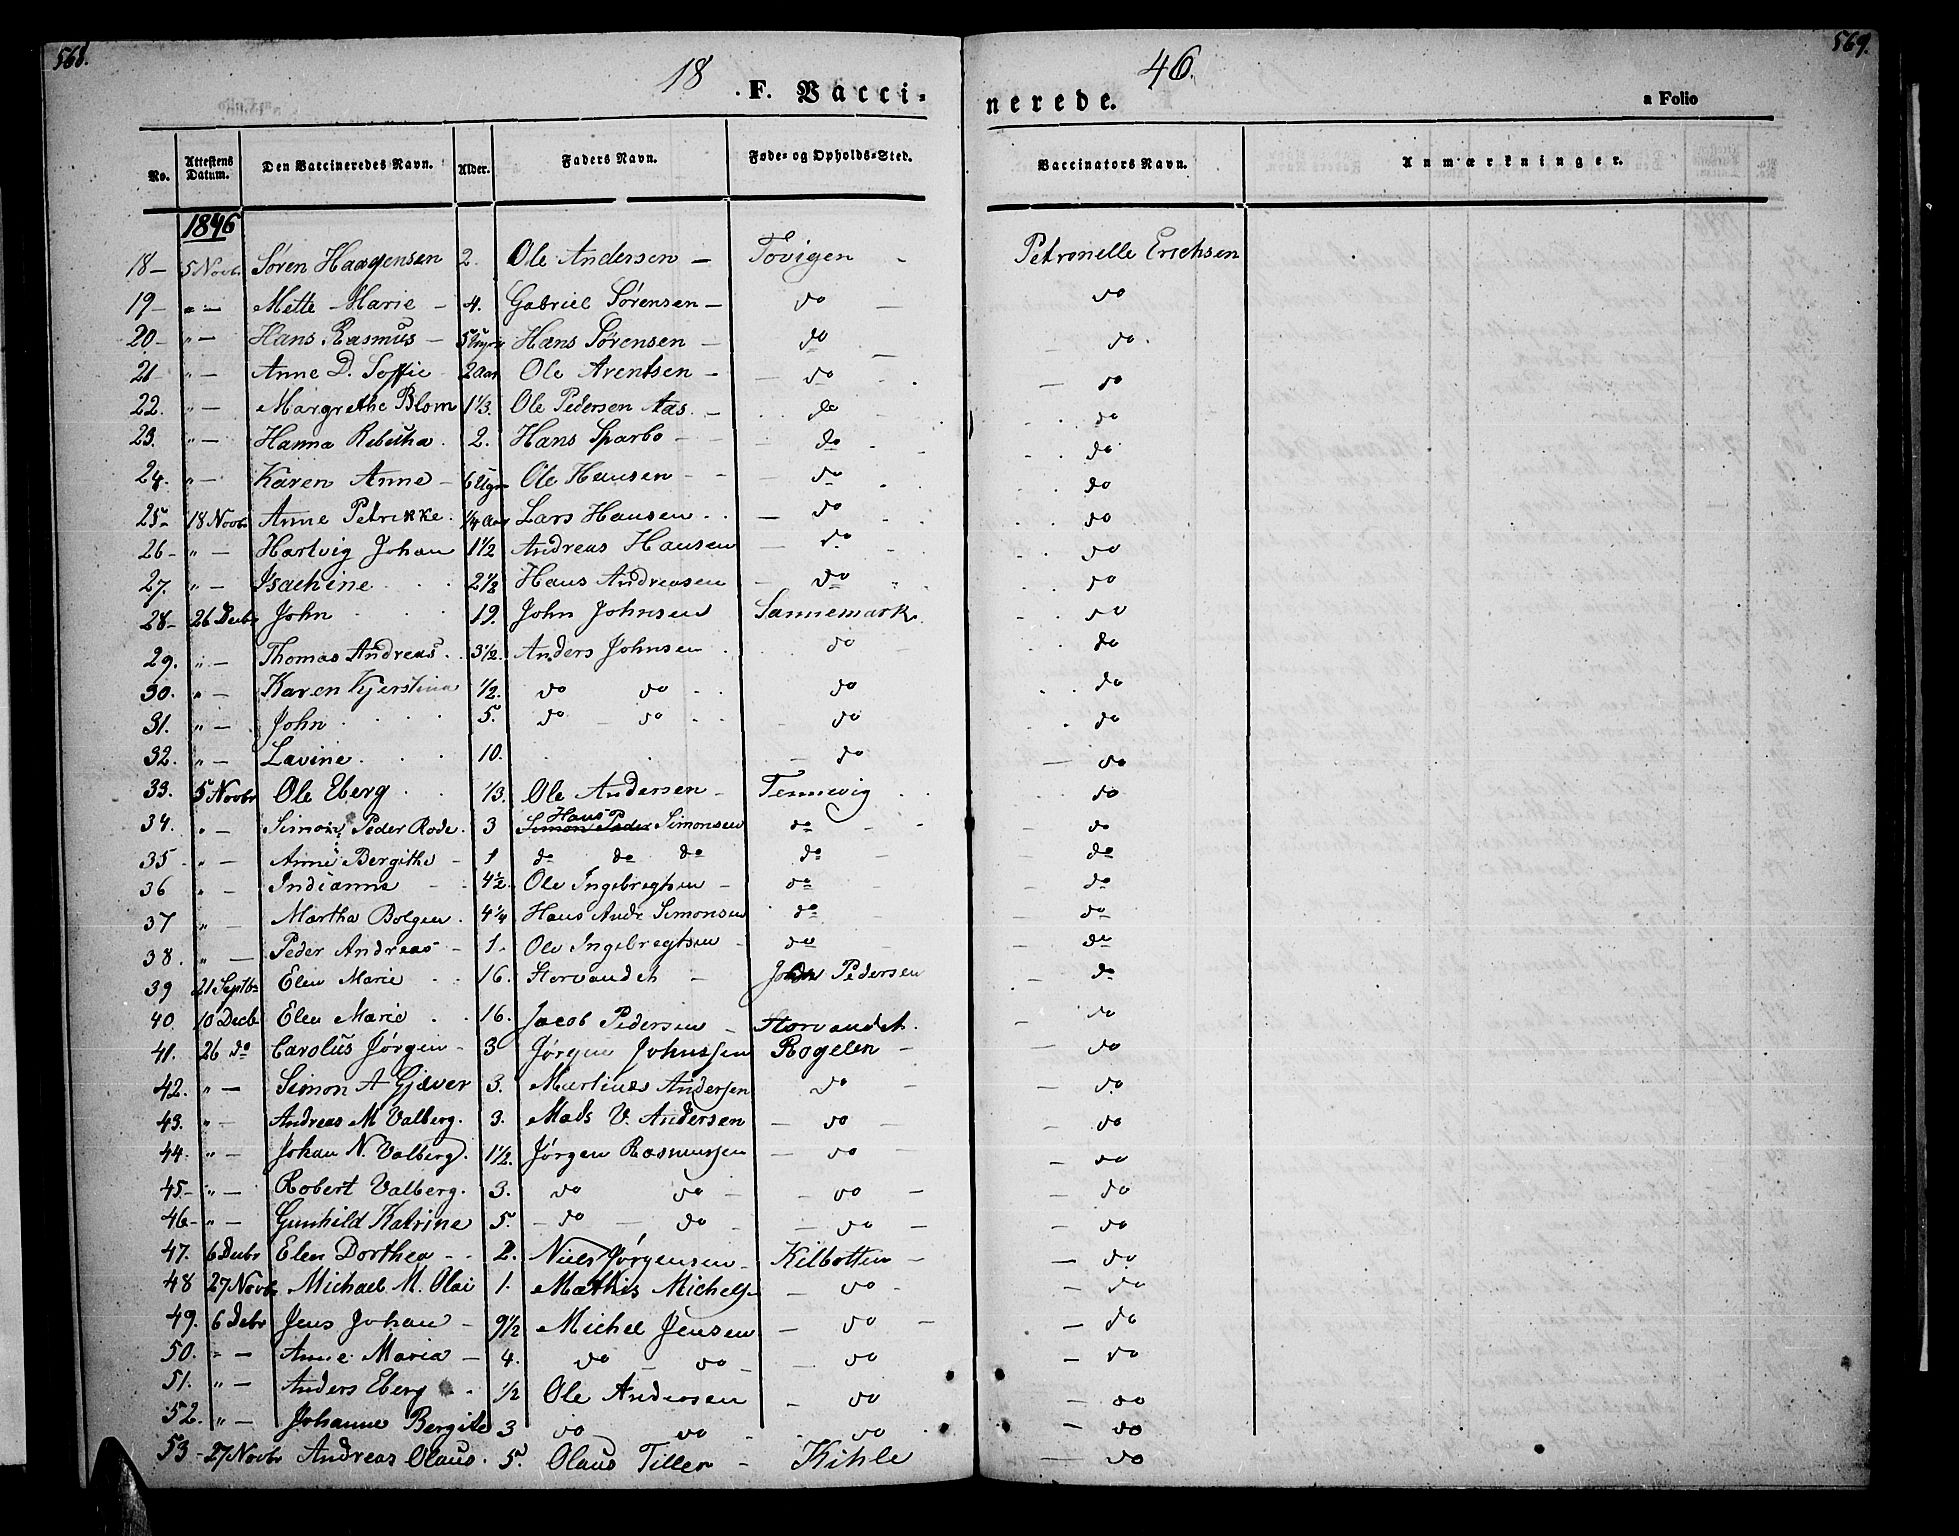 568. 569.
18 46.
F. Vacci- nerede. a Folio
No. Attestens Datum. Den Vaccineredes Navn. Alder. Faders Navn. Føde- og Opholds-Sted. Vaccinators Navn. Anmærkninger.
1846
18 — 5 Novbr Søren Haagensen 2. Ole Andersen — Tovigen - Petronelle Erichsen
19 — " — Mette Marie - 4. Gabriel Sørensen — do — do
20 - " — Hans Rasmus - 5 Hans Sørensen — do — do.
21 " — Anne D. Soffie - 2 Aar Ole Arentsen — do — do
22. " — Margrethe Blom 1 1/3. Ole Pedersen Aas. — do do
23. " — Hanna Rebekka. 2. Hans Sparbo - do do
24. " — Karen Anne - 6 Ole Hansen - do do
25 - 18 Novbr Anne Petrikke. 1/4 Aar Lars Hansen . . — do do
26 - " — Hartvig Johan 1 1/2 Andreas Hansen — do do
27. " — Isachine 2 1/2 Hans Andreasen — do do
28 - 26 Decbr John 19. John Johnsen Sannemark. do
29. " — Thomas Andreas. 3 1/2. Anders Johnsen . do do
30. " — Karen Kjerstina 1/2. do do do do
31. " — John 5. do — do do do
32. " — Lavine. 10. — do — do
33. 5 Novbr Ole Eberg 1/3. Ole Andersen — Tennevig — do
34. " — Simon Peder Rode. 3 Hans Simon Peder Simonsen do — — do
35 " — Anne Bergithe - 1 do do do do — — do
36 " — Indianna - 4 1/2. Ole Ingebregtsen — do — do
37 " — Martha Bolgen . 4 1/4 Hans Andr Simonsen do — do
38. " — Peder Andreas - 1. Ole Ingebregtsen do — do
39 21 Septbr Elen Marie 16. Storvandet — Pedersen — do
40 10 Decbr Elen Marie 16. Jacob Pedersen — Storvandet. — do
41. 26 do Carolus Jørgen - 3 Jørgen Johnssen Rogelen — — do
42. " — Simon A Gjæver 3. Martinus Andersen do — — do
43. " — Andreas M Valberg. 3. Mads V. Andersen — do — — do
44. " — Johan N. Valberg. 1 1/2. Jørgen Rasmussen — do — — do
45. - " — Robert Valberg. 3. do do — - do — — do
46 - " — Gunhild Katrine 5. - do — do - — do — — do
47. 6 Decbr Elen Dorthea - 2. Niels Jørgensen - Kilbotten — do
48 27 Novbr Michael M. Olai 1. Mathis Michels — do - — do
49. 6 Debr Jens Johan — 9 1/2 Michel Jensen — do — — do
50. " — Anne Maria — 4. do — do — — do — do
51. " — Anders Eberg 1/2 Ole Andersen - do — do
52. " — Johanne Bergite 3 do do - do — do
53 - 27 Novbr Andreas Olaus. 5. Olaus Tiller - Kihle — do